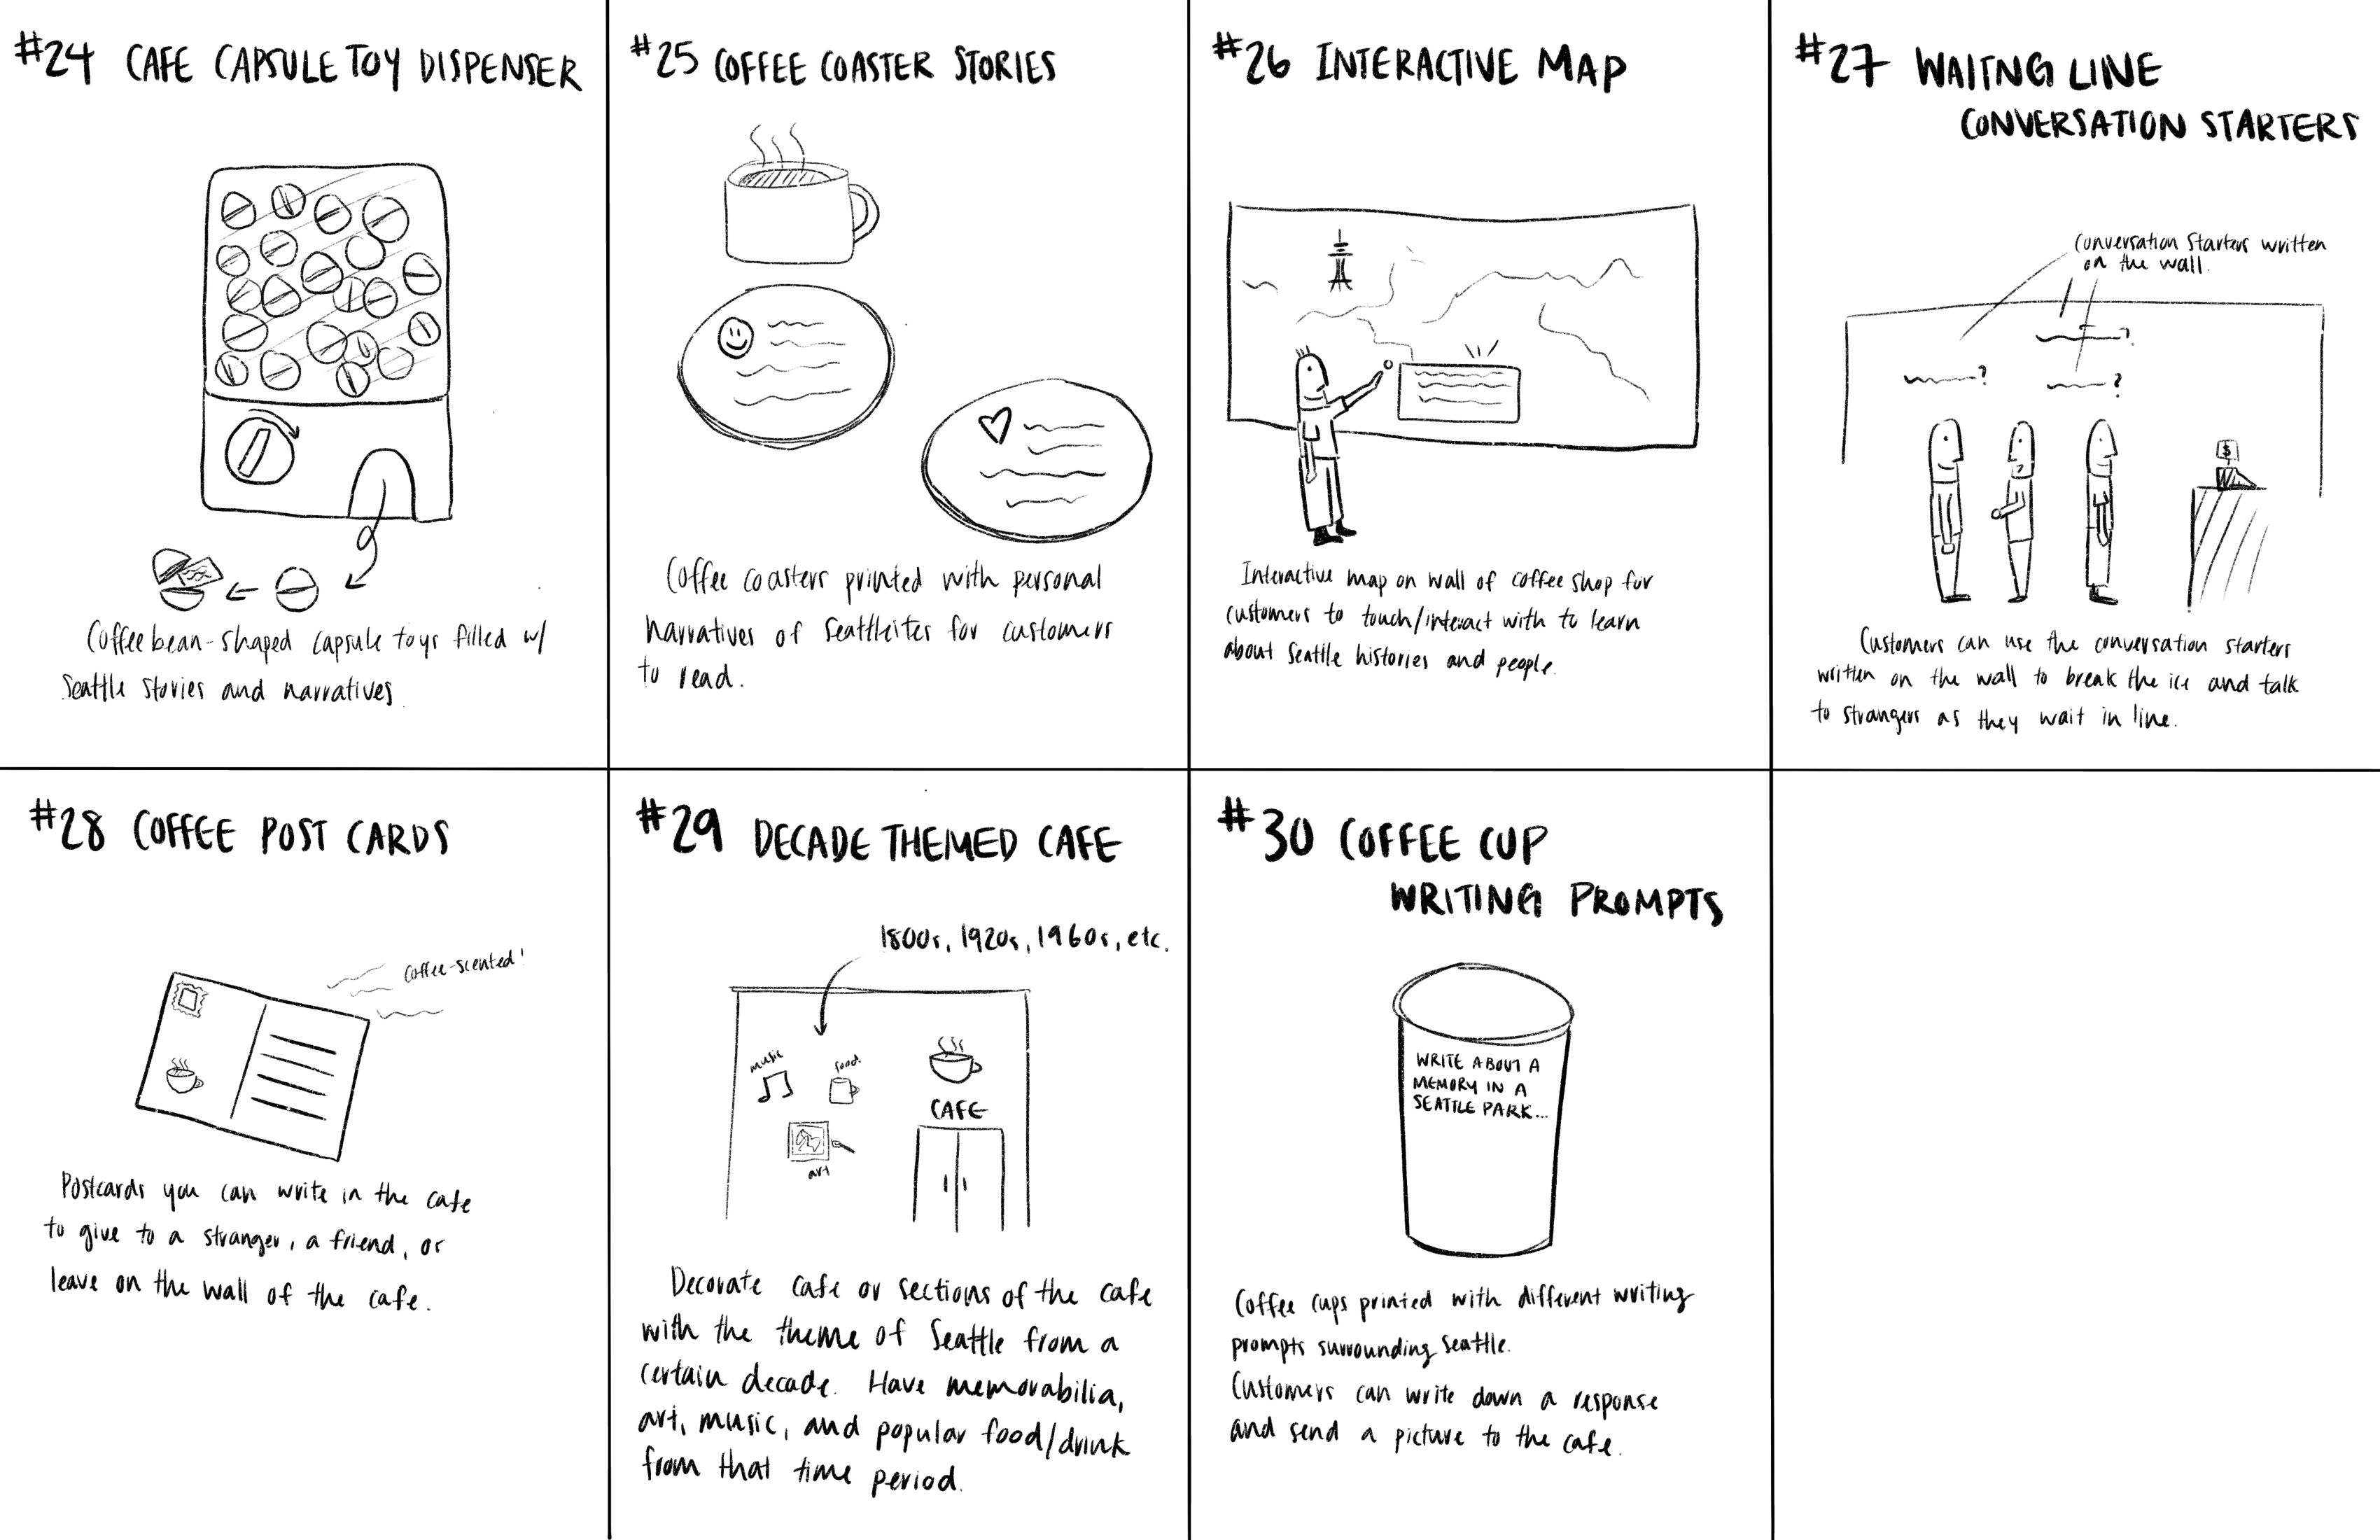 #24 CAFE CAPSULE TOY DISPENSER
Coffee bean-shaped capsule toys filled w/
Seattle stories and narratives
#25 COFFEE COASTER STORIES
Coffee coasters printed with personal
narratives of Seattleites for customers
to read.
#26 INTERACTIVE MAP
Interactive map on wall of coffee shop for
customers to touch/interact with to learn
about Seattle histories and people.
#27 WAITNG LINE
CONVERSATION STARTERS
Conversation starters written
on the wall.
?
?
?
$
Customers can use the conversation starters
written on the wall to break the ice and talk
to strangers as they wait in line.
#28 COFFEE POST CARDS
Coffee-scented!
Postcards you can write in the cafe
to give to a stranger, a friend, or
leave on the wall of the cafe.
#29 DECADE THEMED CAFE
1800s, 1920s, 1960s, etc.
music
food
art
CAFE
Decorate cafe or sections of the cafe
with the theme of Seattle from a
certain decade. Have memorabilia,
art, music, and popular food/drink
from that time period.
#30 COFFEE CUP
WRITING PROMPTS
WRITE ABOUT A
MEMORY IN A
SEATTLE PARK...
Coffee cups printed with different writing
prompts surrounding Seattle.
Customers can write down a response
and send a picture to the cafe.